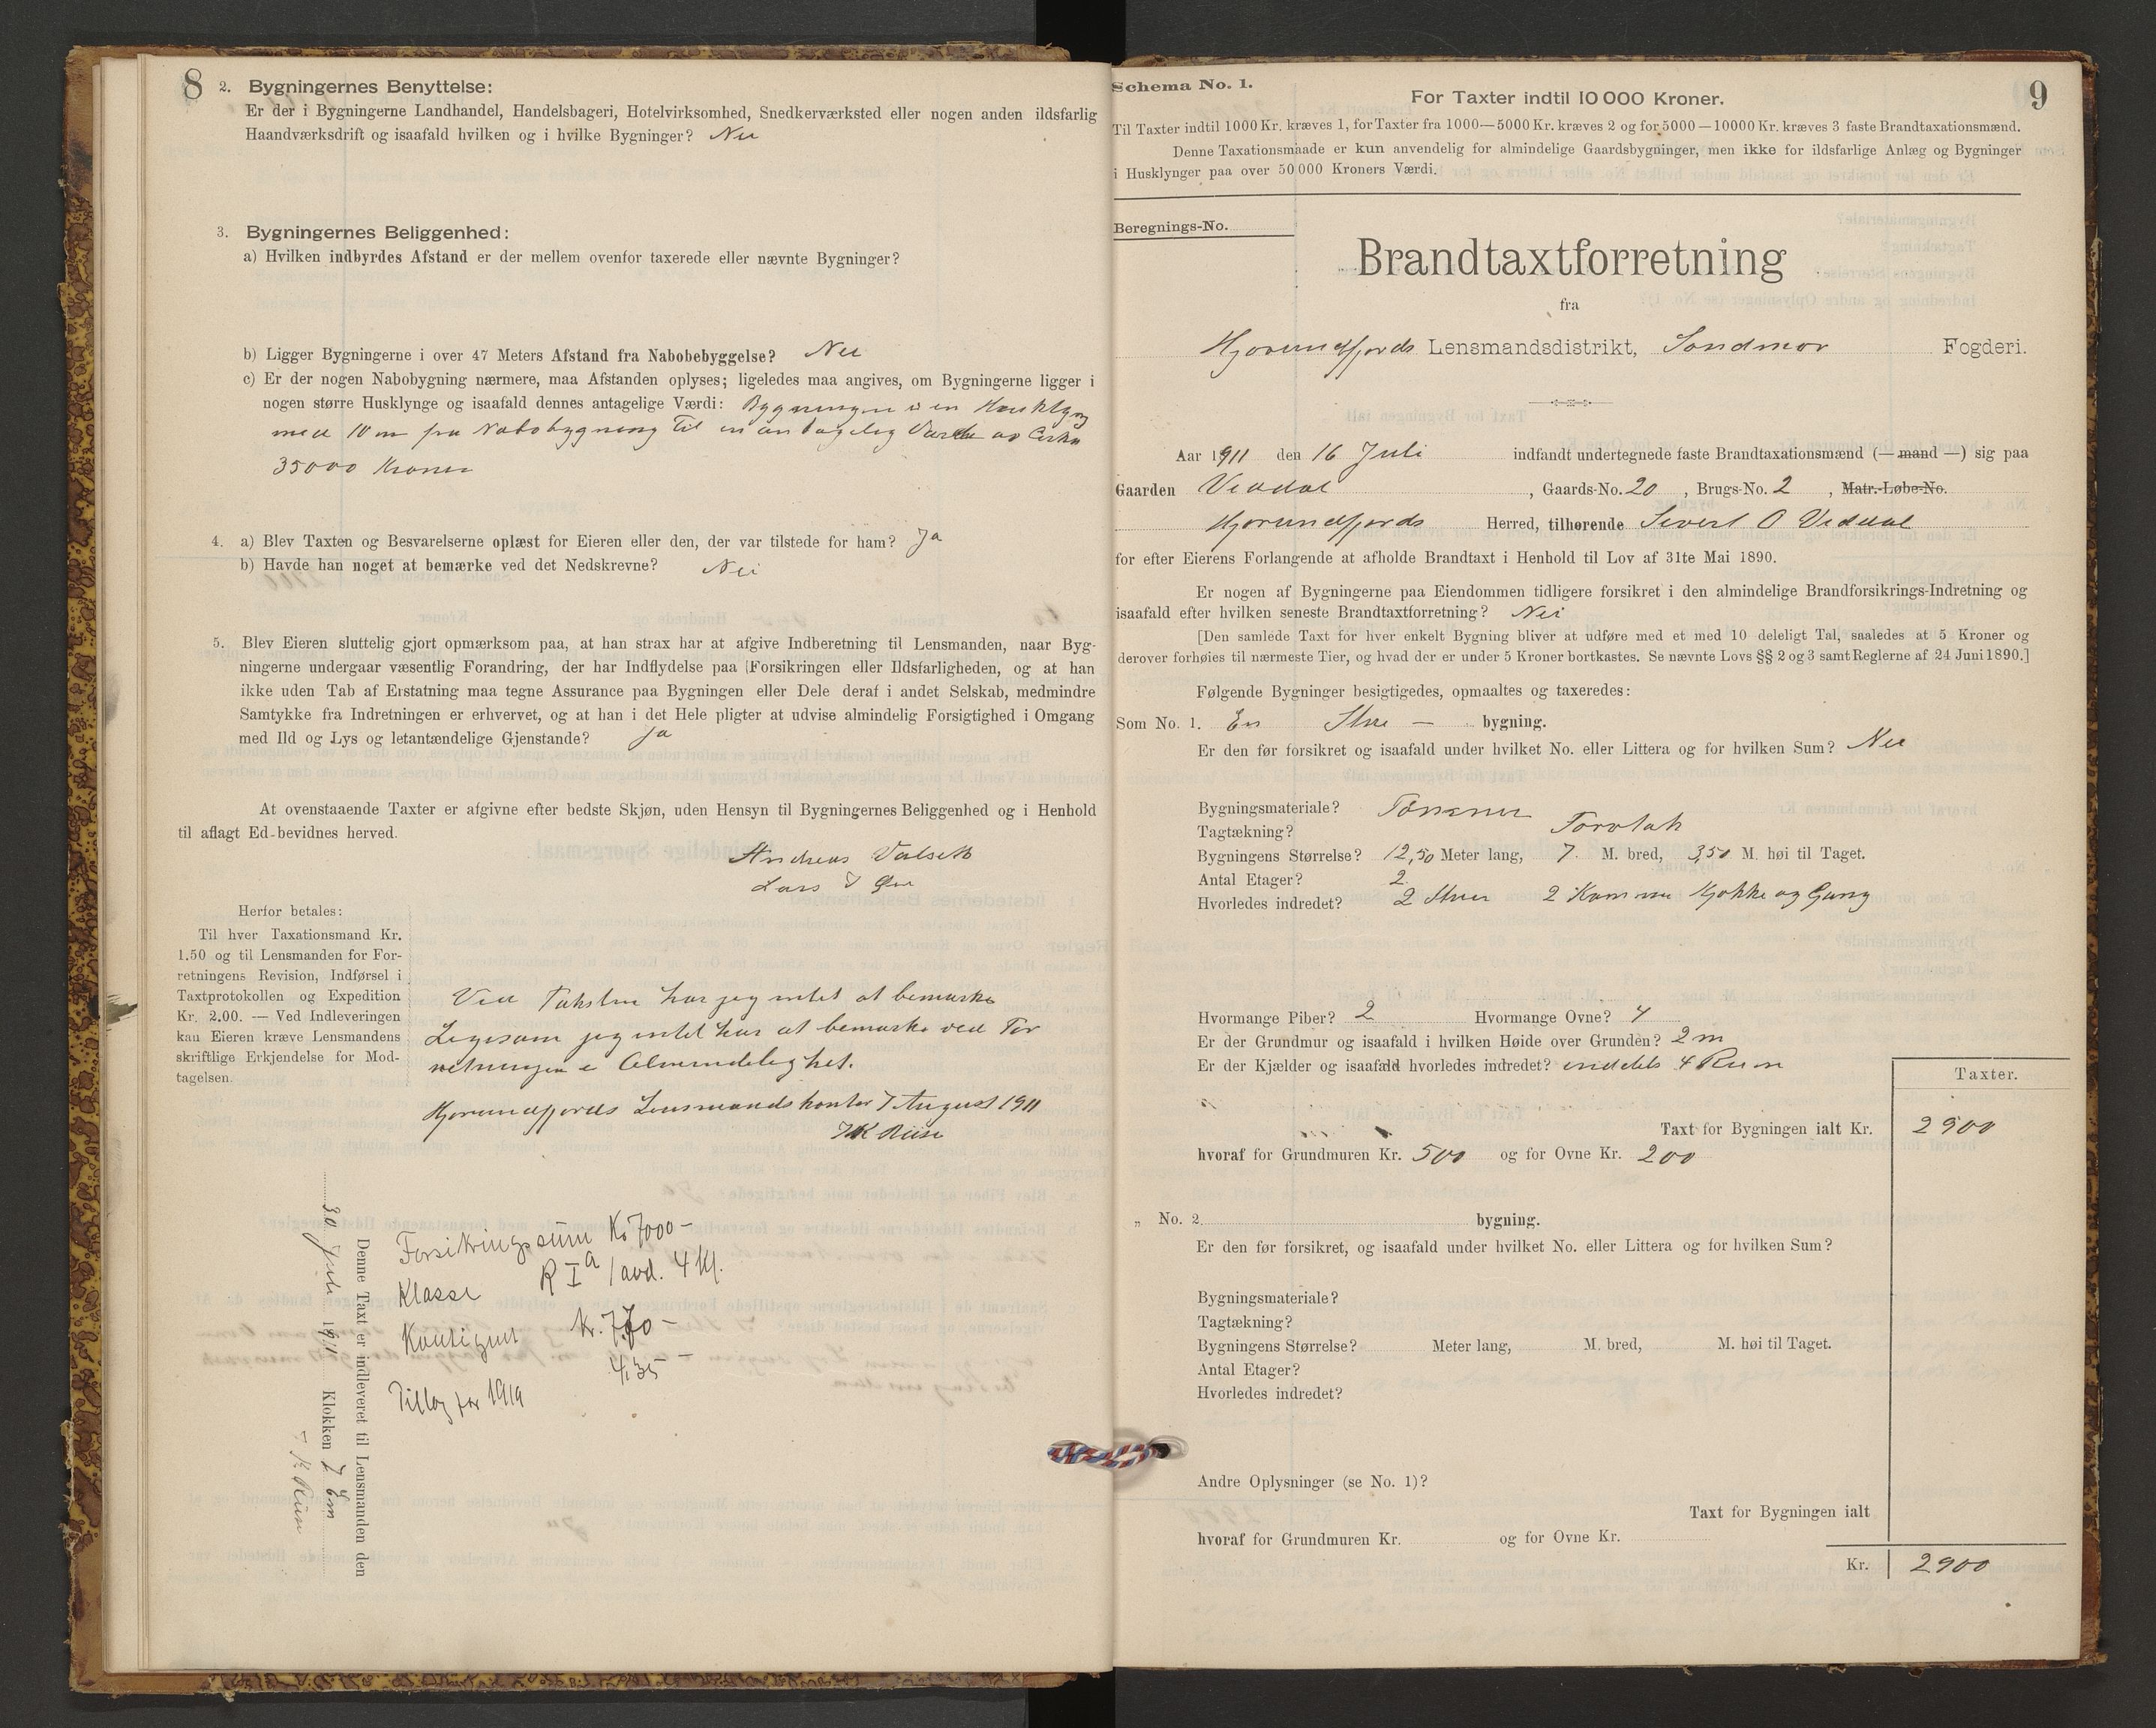 8
2. Bygningernes Benyttelse:
Er der i Bygningerne Landhandel, Handelsbageri, Hotelvirksomhed, Snedkerværksted eller nogen anden ildsfarlig
Haandværksdrift og isaafald hvilken og i hvilke Bygninger? Nei
3. Bygningernes Beliggenhed:
a) Hvilken indbyrdes Afstand er der mellem ovenfor taxerede eller nævnte Bygninger?
b) Ligger Bygningerne i over 47 Meters Afstand fra Nabobebyggelse? Nei
c) Er der nogen Nabobygning nærmere, maa Afstanden oplyses; ligeledes maa angives, om Bygningerne ligger i
nogen større Husklynge og isaafald dennes antagelige Værdi: Bygningen i en Husklyng
med 10 m fra Nabobygning til en antagelig Værdi av Cirka
35000 Kroner
4. a) Blev Taxten og Besvarelserne oplæst for Eieren eller den, der var tilstede for ham? Ja
b) Havde han noget at bemærke ved det Nedskrevne? Nei
5. Blev Eieren sluttelig gjort opmærksom paa, at han strax har at afgive Indberetning til Lensmanden, naar Byg-
ningerne undergaar væsentlig Forandring, der har Indflydelse paa Forsikringen eller Ildsfarligheden, og at han
ikke uden Tab af Erstatning maa tegne Assurance paa Bygningen eller Dele deraf i andet Selskab, medmindre
Samtykke fra Indretningen er erhvervet, og at han i det Hele pligter at udvise almindelig Forsigtighed i Omgang
med Ild og Lys og letantændelige Gjenstande? Ja
At ovenstaaende Taxter er afgivne efter bedste Skjøn, uden Hensyn til Bygningernes Beliggenhed og i Henhold
til aflagt Ed bevidnes herved.
Andreas Valseth
Lars J Øie
Herfor betales:
Til hver Taxationsmand Kr.
1.50 og til Lensmanden for For-
retningens Revision, Indførsel i
Taxtprotokollen og Expedition
Kr. 2.00. — Ved Indleveringen
kan Eieren kræve Lensmandens
skriftlige Erkjendelse for Mod-
tagelsen.
Ved Taksten har jeg intet at bemærke
Ligesom jeg intet har at bemærke ved For
retningen i Almindelighet.
Hjørundfjords Lensmandskontor 7 August 1911
J K Riise
Denne Taxt er indleveret til Lensmanden den
30 Juli 1911 Klokken 7 Em
J K Riise
Forsikringssum Kr 7000 -
Klasse R I a / avd. 4 Kl.
Kontigent Kr. 7,70 -
Tillæg for 1919 4,35 -
9
Schema No. 1.
For Taxter indtil 10 000 Kroner.
Til Taxter indtil 1000 Kr. kræves 1, for Taxter fra 1000—5000 Kr. kræves 2 og for 5000—10000 Kr. kræves 3 faste Brandtaxationsmænd.
Denne Taxationsmaade er kun anvendelig for almindelige Gaardsbygninger, men ikke for ildsfarlige Anlæg og Bygninger
i Husklynger paa over 50 000 Kroners Værdi.
Beregnings-No.
Brandtaxtforretning
fra
Hjørundfjords Lensmandsdistrikt, Søndmør Fogderi.
Aar 1911 den 16 Juli indfandt undertegnede faste Brandtaxationsmænd (— mand —) sig paa
Gaarden Viddal, Gaards-No. 20, Brugs-No. 2, Matr.-Løbe-No.
Hjørundfjords Herred, tilhørende Sivert O Viddal
for efter Eierens Forlangende at afholde Brandtaxt i Henhold til Lov af 31te Mai 1890.
Er nogen af Bygningerne paa Eiendommen tidligere forsikret i den almindelige Brandforsikrings-Indretning og
isaafald efter hvilken seneste Brandtaxtforretning? Nei
[Den samlede Taxt for hver enkelt Bygning bliver at udføre med et med 10 deleligt Tal, saaledes at 5 Kroner og
derover forhøies til nærmeste Tier, og hvad der er under 5 Kroner bortkastes. Se nævnte Lovs §§ 2 og 3 samt Reglerne af 24 Juni 1890.]
Følgende Bygninger besigtigedes, opmaaltes og taxeredes:
Som No. 1. En Stue — bygning.
Er den før forsikret og isaafald under hvilket No. eller Littera og for hvilken Sum? Nei
Bygningsmateriale? Tømmer
Tagtækning? Torvtak
Bygningens Størrelse? 12,50 Meter lang, 7. M. bred, 3,50 M. høi til Taget.
Antal Etager? 2
Hvorledes indredet? 2 Stuer 2 Kammer Kjøkken og Gang
Hvormange Piber? 2 Hvormange Ovne? 4
Er der Grundmur og isaafald i hvilken Høide over Grunden? 2 m
Er der Kjælder og isaafald hvorledes indredet? inddelt 4 Rum
Taxter.
Taxt for Bygningen ialt Kr. 2900
hvoraf for Grundmuren Kr. 500 og for Ovne Kr. 200
„ No. 2. bygning.
Er den før forsikret, og isaafald under hvilket No. eller Littera og for hvilken Sum?
Bygningsmateriale?
Tagtækning?
Bygningens Størrelse? Meter lang, M. bred, M. høi til Taget.
Antal Etager?
Hvorledes indredet?
Andre Oplysninger (se No. 1)?
Taxt for Bygningen ialt
hvoraf for Grundmuren Kr. og for Ovne Kr.
Kr. 2900